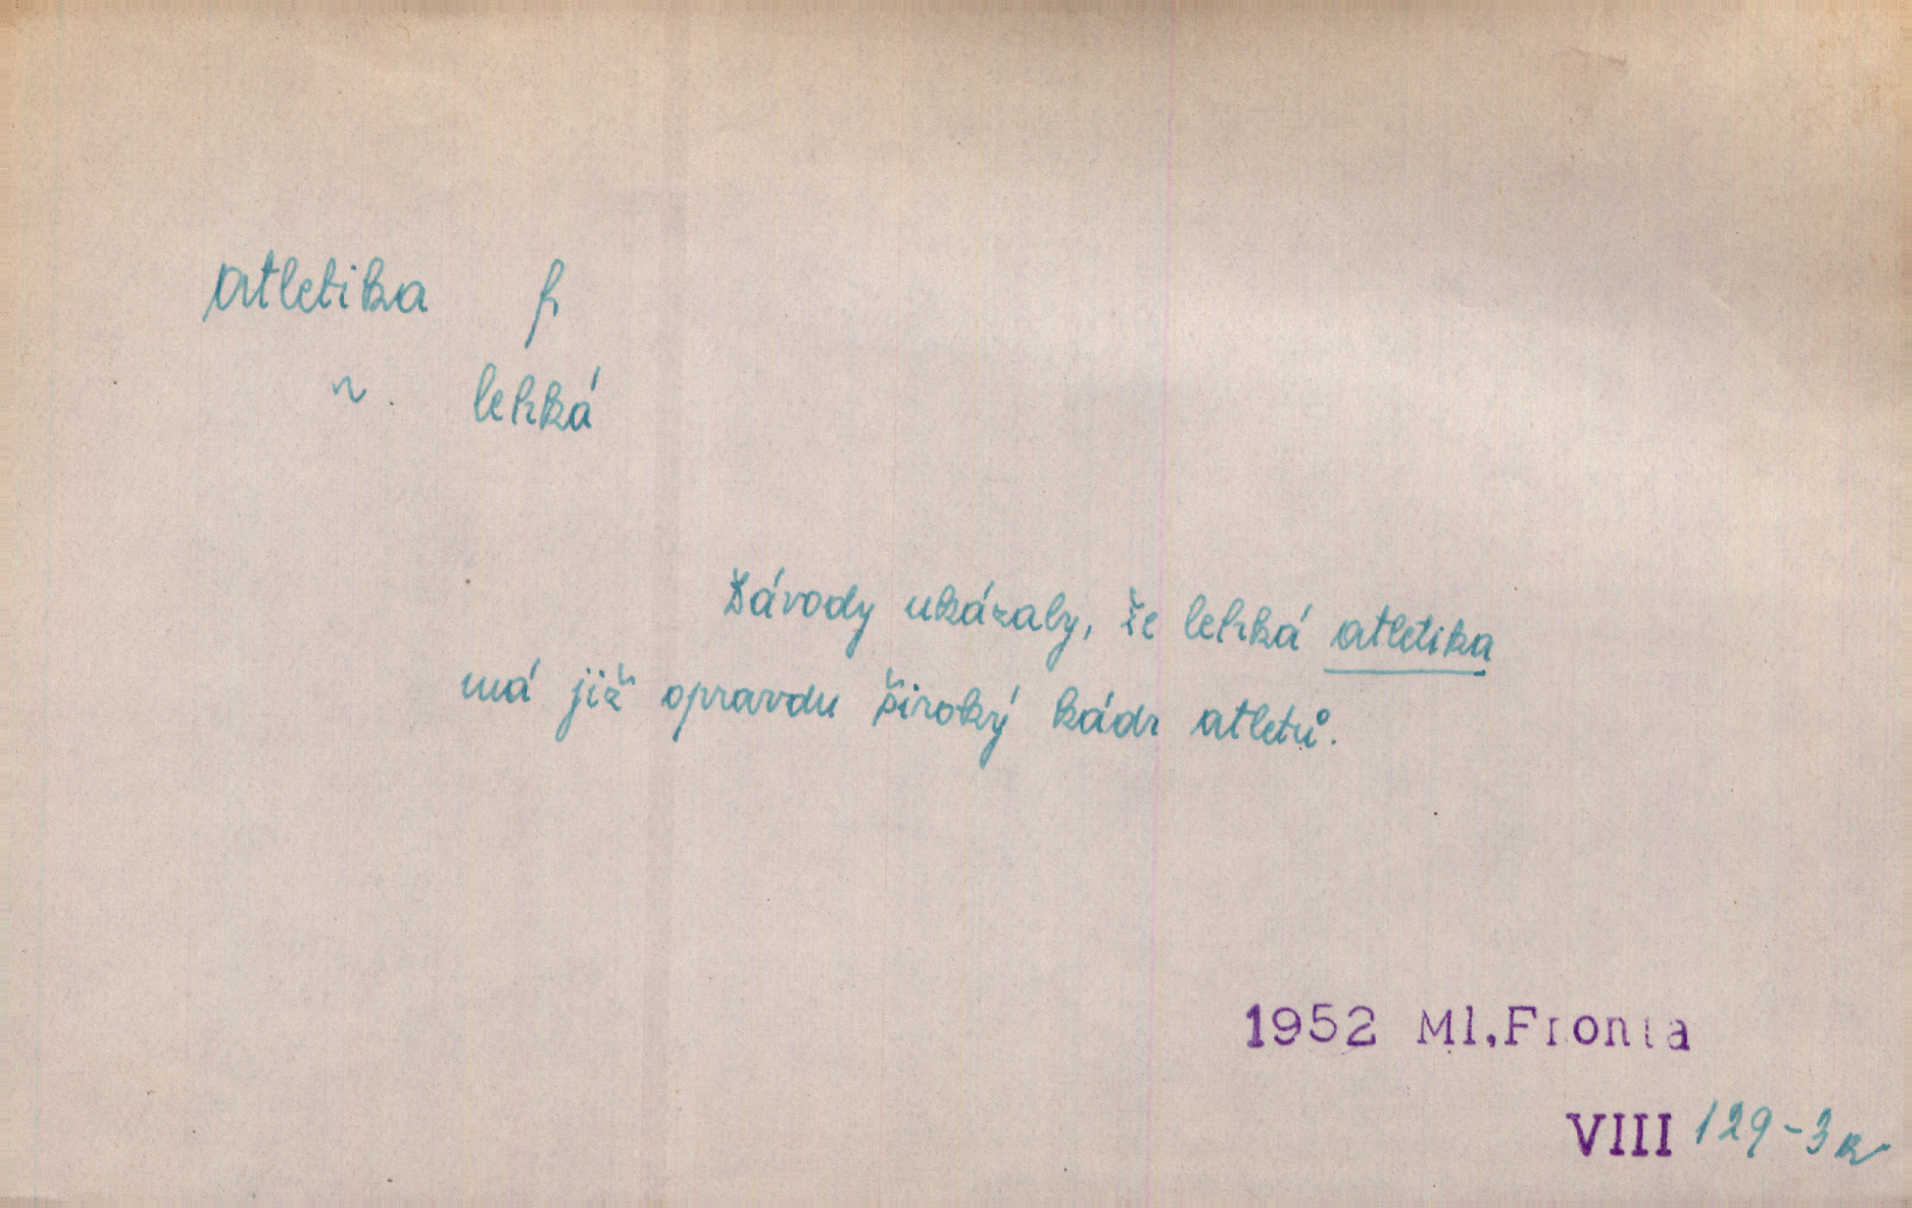 atletika f
~. lehká
Závody ukázaly, že lehká atletika
má již opravdu široký kádr atletů.
1952 Ml.Fronta
VIII 129-3